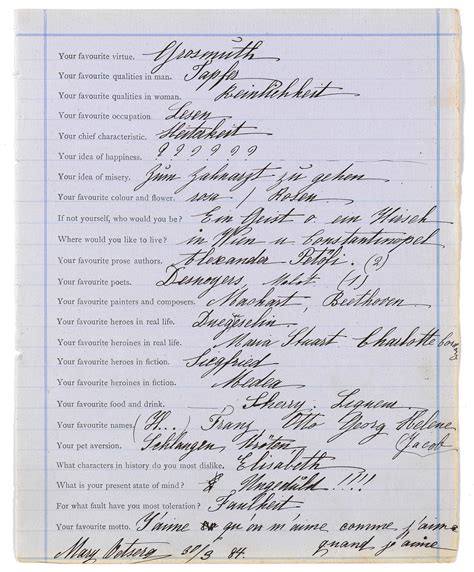 Your favourite virtue. Grosmuth
Your favourite qualities in man. Tapfer
Your favourite qualities in woman. Reinlichkeit
Your favourite occupation Lesen
Your chief characteristic.
Your idea of happiness. ? ? ? ? ? ?
Your idea of misery. Zum Zahnarzt zu gehen
Your favourite colour and flower. rosa / Rosen
If not yourself, who would you be? Ein Geist o ein Hirsch
Where would you like to live? in Wien u Constantinopel
Your favourite prose authors. Alexander Petöfi. (2)
Your favourite poets. Desnoyers (1)
Your favourite painters and composers. Machart, Beethoven
Your favourite heroes in real life.
Your favourite heroines in real life. Maria Stuart Charlotte
Your favourite heroes in fiction. Siegfried
Your favourite heroines in fiction. Medea
Your favourite food and drink. Sherry.
Your favourite names? (H... Franz Otto Georg Helene
Your pet aversion. Schlangen Kröten (Jacob)
What characters in history do you most dislike. Elisabeth
What is your present state of mind? Ungeduld !!!!
For what fault have you most toleration? Faulheit
Your favourite motto. J'aime qu'on m'aime comme j'aime
quand j'aime
Mary Vetsera 30/3 84.